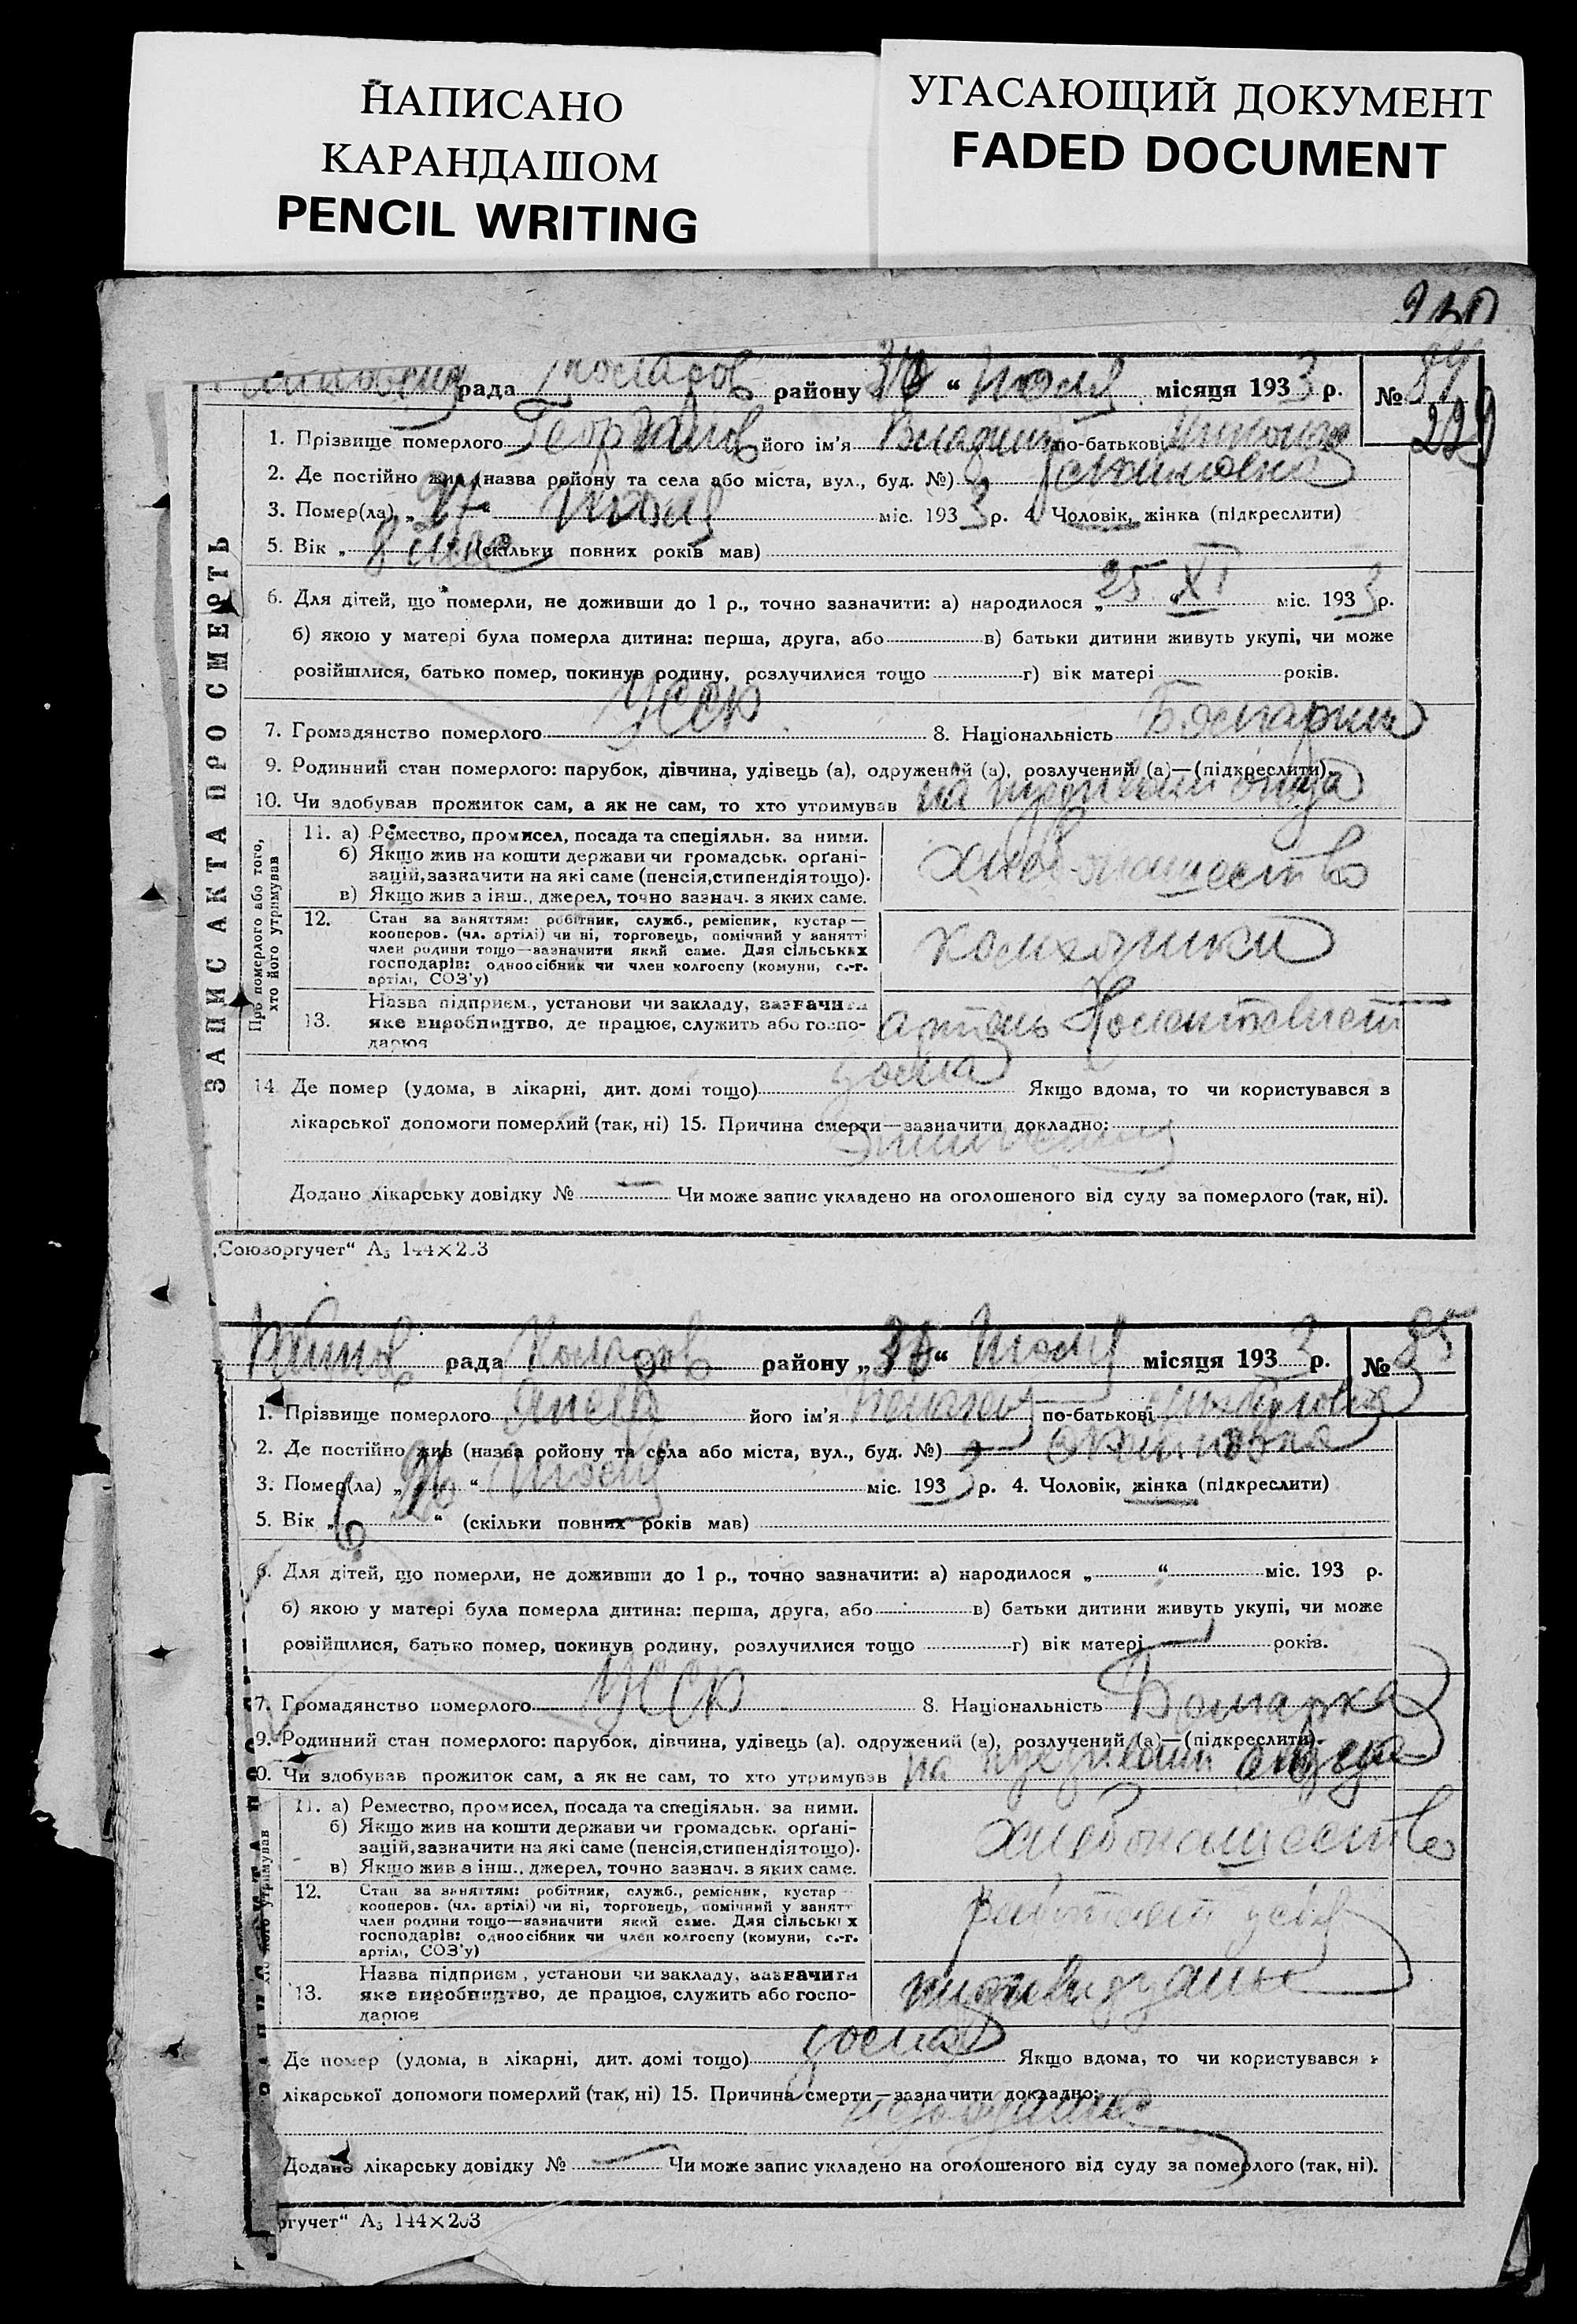 НАПИСАНО
КАРАНДАШОМ
PENCIL WRITING
УГАСАЮЩИЙ ДОКУМЕНТ
FADED DOCUMENT
рада району 30 “ Июля місяця 1933 р. № 84
229
ЗАПИС АКТА ПРО СМЕРТЬ
1. Прізвище померлого його ім'я Владимир по-батькові
2. Де постійно жив (назва ройону та села або міста, вул., буд. №)
3. Помер(ла) „ “ Июля міс. 1933 р. 4. Чоловік, жінка (підкреслити)
5. Вік „ 8 “ (скільки повних років мав)
6. Для дітей, що померли, не доживши до 1 р., точно зазначити: а) народилося „ 25 “ XI міс. 1933 р.
б) якою у матері була померла дитина: перша, друга, або в) батьки дитини живуть укупі, чи може
розійшлися, батько помер, покинув родину, розлучилися тощо г) вік матері років.
7. Громадянство померлого УССР 8. Національність Болгарин
9. Родинний стан померлого: парубок, дівчина, удівець (а), одружений (а), розлучений (а)—(підкреслити).
10. Чи здобував прожиток сам, а як не сам, то хто утримував на отца
Про померлого або того, хто його утримував
11. а) Ремество, промисел, посада та спеціяльн. за ними.
б) Якщо жив на кошти держави чи громадськ. орґані-
зацій, зазначити на які саме (пенсія, стипендія тощо).
в) Якщо жив з інш., джерел, точно зазнач. з яких саме.
хлебопашество
12. Стан за заняттям: робітник, служб., ремісник, кустар—
кооперов. (чл. артілі) чи ні, торговець, помічний у занятті
член родини тощо—зазначити який саме. Для сільських
господарів: одноосібник чи член колгоспу (комуни, с.-г.
артілі, СОЗ'у)
колхозники
13. Назва підприєм., установи чи закладу, зазначити
яке виробництво, де працює, служить або госпо-
дарює
артель
14. Де помер (удома, в лікарні, дит. домі тощо) дома Якщо вдома, то чи користувався з
лікарської допомоги померлий (так, ні) 15. Причина смерти—зазначити докладно:
Додано лікарську довідку № — Чи може запис укладено на оголошеного від суду за померлого (так, ні).
„Союзоргучет“ А₅ 144×203
рада району „30“ Июля місяця 1933 р. № 85
1. Прізвище померлого його ім'я по-батькові
2. Де постійно жив (назва ройону та села або міста, вул., буд. №)
3. Помер(ла) „ “ Июля міс. 1933 р. 4. Чоловік, жінка (підкреслити)
5. Вік „ 6 “ (скільки повних років мав)
6. Для дітей, що померли, не доживши до 1 р., точно зазначити: а) народилося „ “ міс. 193 р.
б) якою у матері була померла дитина: перша, друга, або в) батьки дитини живуть укупі, чи може
розійшлися, батько помер, покинув родину, розлучилися тощо г) вік матері років.
7. Громадянство померлого УССР 8. Національність Болгарка
9. Родинний стан померлого: парубок, дівчина, удівець (а), одружений (а), розлучений (а)—(підкреслити).
0. Чи здобував прожиток сам, а як не сам, то хто утримував на отца
11. а) Ремество, промисел, посада та спеціяльн. за ними.
б) Якщо жив на кошти держави чи громадськ. орґані-
зацій, зазначити на які саме (пенсія, стипендія тощо).
в) Якщо жив з інш., джерел, точно зазнач. з яких саме.
хлебопашество
12. Стан за заняттям: робітник, служб., ремісник, кустар
кооперов. (чл. артілі) чи ні, торговець, помічний у занятт
член родини тощо—зазначити який саме. Для сільських
господарів: одноосібник чи член колгоспу (комуни, с.-г.
артілі, СОЗ'у)
13. Назва підприєм., установи чи закладу, зазначити
яке виробництво, де працює, служить або госпо-
дарює
Де помер (удома, в лікарні, дит. домі тощо) дома Якщо вдома, то чи користувався з
лікарської допомоги померлий (так, ні) 15. Причина смерти—зазначити докладно:
Додано лікарську довідку № — Чи може запис укладено на оголошеного від суду за померлого (так, ні).
ргучет“ А₅ 144×203